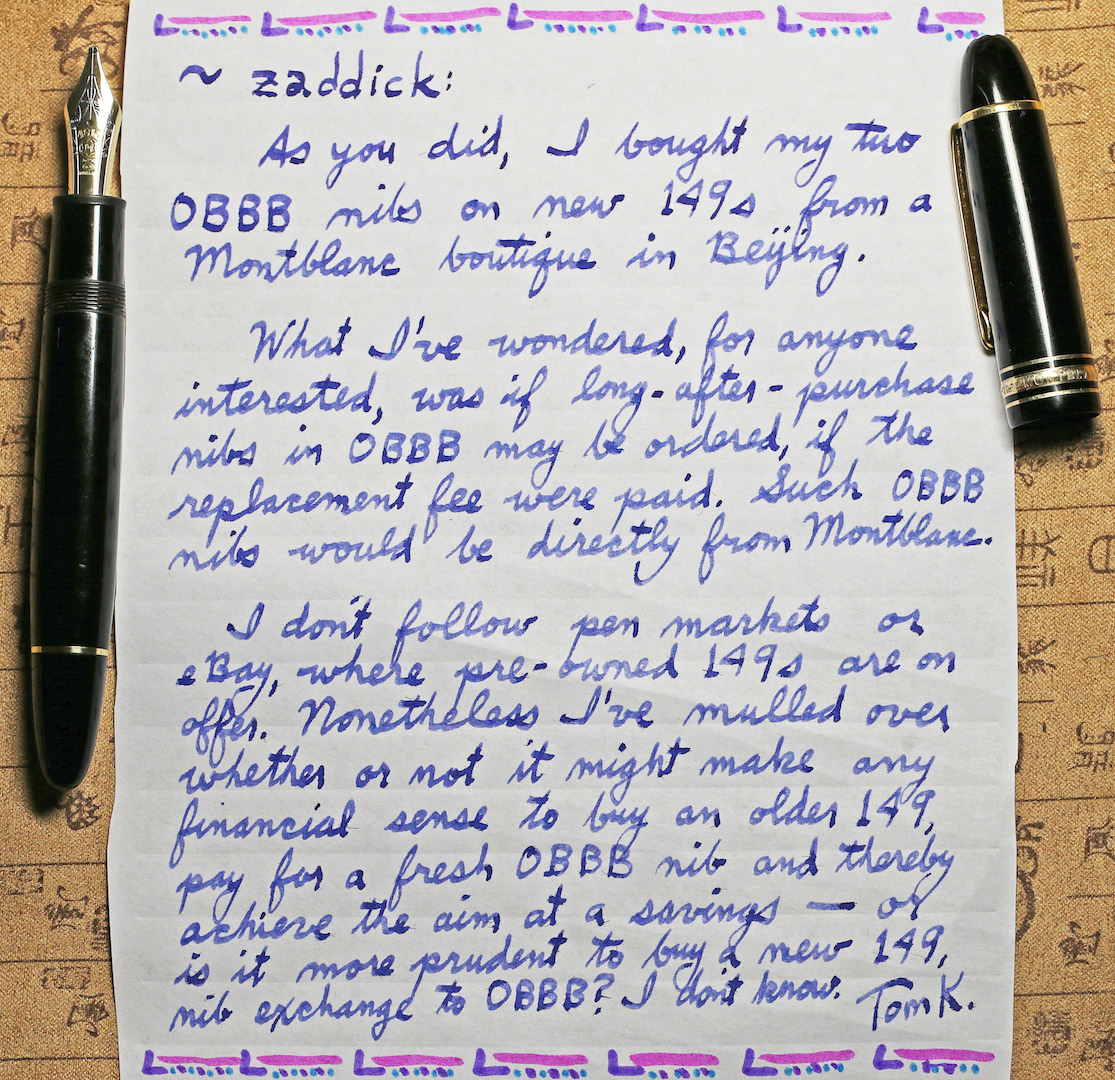 ~ zaddick:
As you did, I bought my two
OBBB nibs on new 149s from a
Montblanc boutique in Beijing.
What I've wondered, for anyone
interested, was if long-after-purchase
nibs in OBBB may be ordered, if the
replacement fee were paid. Such OBBB
nibs would be directly from Montblanc.
I don't follow pen markets or
eBay, where pre-owned 149s are on
offer. Nonetheless I've mulled over
whether or not it might make any
financial sense to buy an older 149,
pay for a fresh OBBB nib and thereby
achieve the aim at a savings — or
is it more prudent to buy a new 149,
nib exchange to OBBB? I don't know. Tom K.